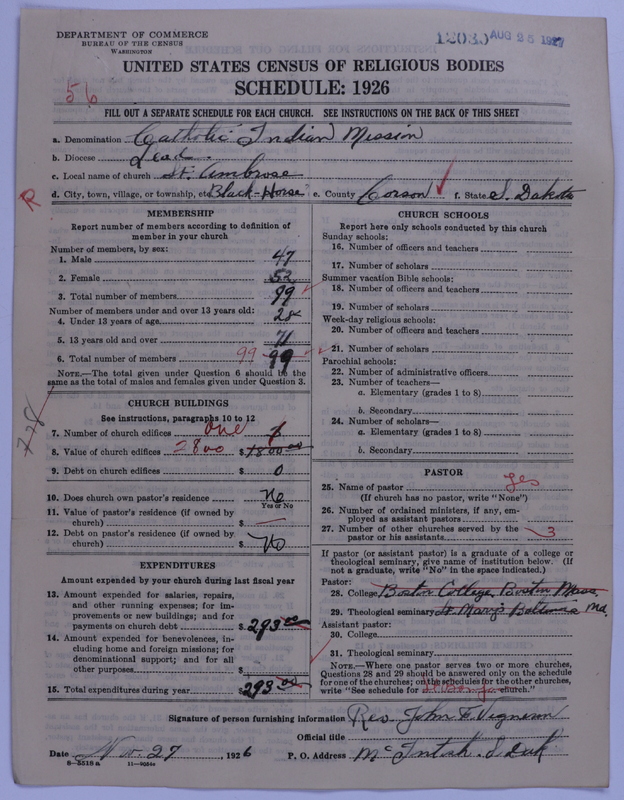 DEPARTMENT OF COMMERCE
BUREAU OF THE CENSUS
WASHINGTON
12035 AUG 25 1927
UNITED STATES CENSUS OF RELIGIOUS BODIES
SCHEDULE: 1926
56
FILL OUT A SEPARATE SCHEDULE FOR EACH CHURCH. SEE INSTRUCTIONS ON THE BACK OF THIS SHEET
a. Denomination Catholic Indian Mission
b. Diocese Lead
c. Local name of church St. Ambrose
R
d. City, town, village, or township, etc. Black-Horse e. County Corson f. State S. Dakota
MEMBERSHIP
Report number of members according to definition of
member in your church
Number of members, by sex:
1. Male 47
2. Female 52
3. Total number of members 99
Number of members under and over 13 years old:
4. Under 13 years of age 28
5. 13 years old and over 71
6. Total number of members 99 99
NOTE.—The total given under Question 6 should be the
same as the total of males and females given under Question 3.
728
CHURCH BUILDINGS
See instructions, paragraphs 10 to 12
7. Number of church edifices one
8. Value of church edifices 2800 $ 1800 00
9. Debt on church edifices $ 0
10. Does church own pastor's residence No
Yes or No
11. Value of pastor's residence (if owned by
church) $ —
12. Debt on pastor's residence (if owned by
church) $ No
EXPENDITURES
Amount expended by your church during last fiscal year
13. Amount expended for salaries, repairs,
and other running expenses; for im-
provements or new buildings; and for
payments on church debt $ 293.00
14. Amount expended for benevolences, in-
cluding home and foreign missions; for
denominational support; and for all
other purposes $
15. Total expenditures during year $ 293.00
CHURCH SCHOOLS
Report here only schools conducted by this church
Sunday schools:
16. Number of officers and teachers
17. Number of scholars
Summer vacation Bible schools:
18. Number of officers and teachers
19. Number of scholars
Week-day religious schools:
20. Number of officers and teachers
21. Number of scholars
Parochial schools:
22. Number of administrative officers
23. Number of teachers—
a. Elementary (grades 1 to 8)
b. Secondary
24. Number of scholars—
a. Elementary (grades 1 to 8)
b. Secondary
PASTOR
25. Name of pastor yes
(If church has no pastor, write "None")
26. Number of ordained ministers, if any, em-
ployed as assistant pastors
27. Number of other churches served by the
pastor or his assistants 3
If pastor (or assistant pastor) is a graduate of a college or
theological seminary, give name of institution below. (If
not a graduate, write "No" in the space indicated.)
Pastor:
28. College Boston College, Boston Mass.
29. Theological seminary St. Mary's Baltimore Md.
Assistant pastor:
30. College
31. Theological seminary
NOTE.—Where one pastor serves two or more churches,
Questions 28 and 29 should be answered only on the schedule
for one of the churches; on the schedules for the other churches,
write "See schedule for church."
Signature of person furnishing information Rev. John F. Vigneron
Official title
Date Nov. 27, 1926 P. O. Address McIntosh S. Dak
8—5518 a 11—9054